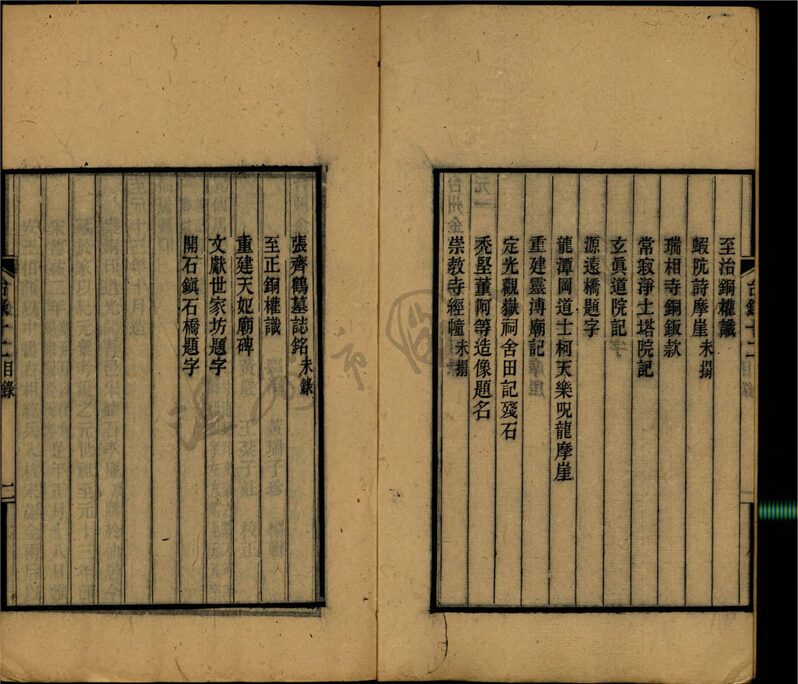 至治銅權識
蝦阮詩摩崖未搨
瑞相寺銅鈑款
常寂淨土塔院記
玄眞道院記
源遠橋題字
龍潭岡道士柯天樂呪龍摩崖
重建靈漙廟記
定光觀嶽祠舍田記殘石
禿堅董阿等造像題名
崇教寺經幢未搨
張齊鶴墓誌銘未錄
至正銅權識
重建天妃廟碑
文獻世家坊題字
開石鎭石橋題字
台錄十二目錄